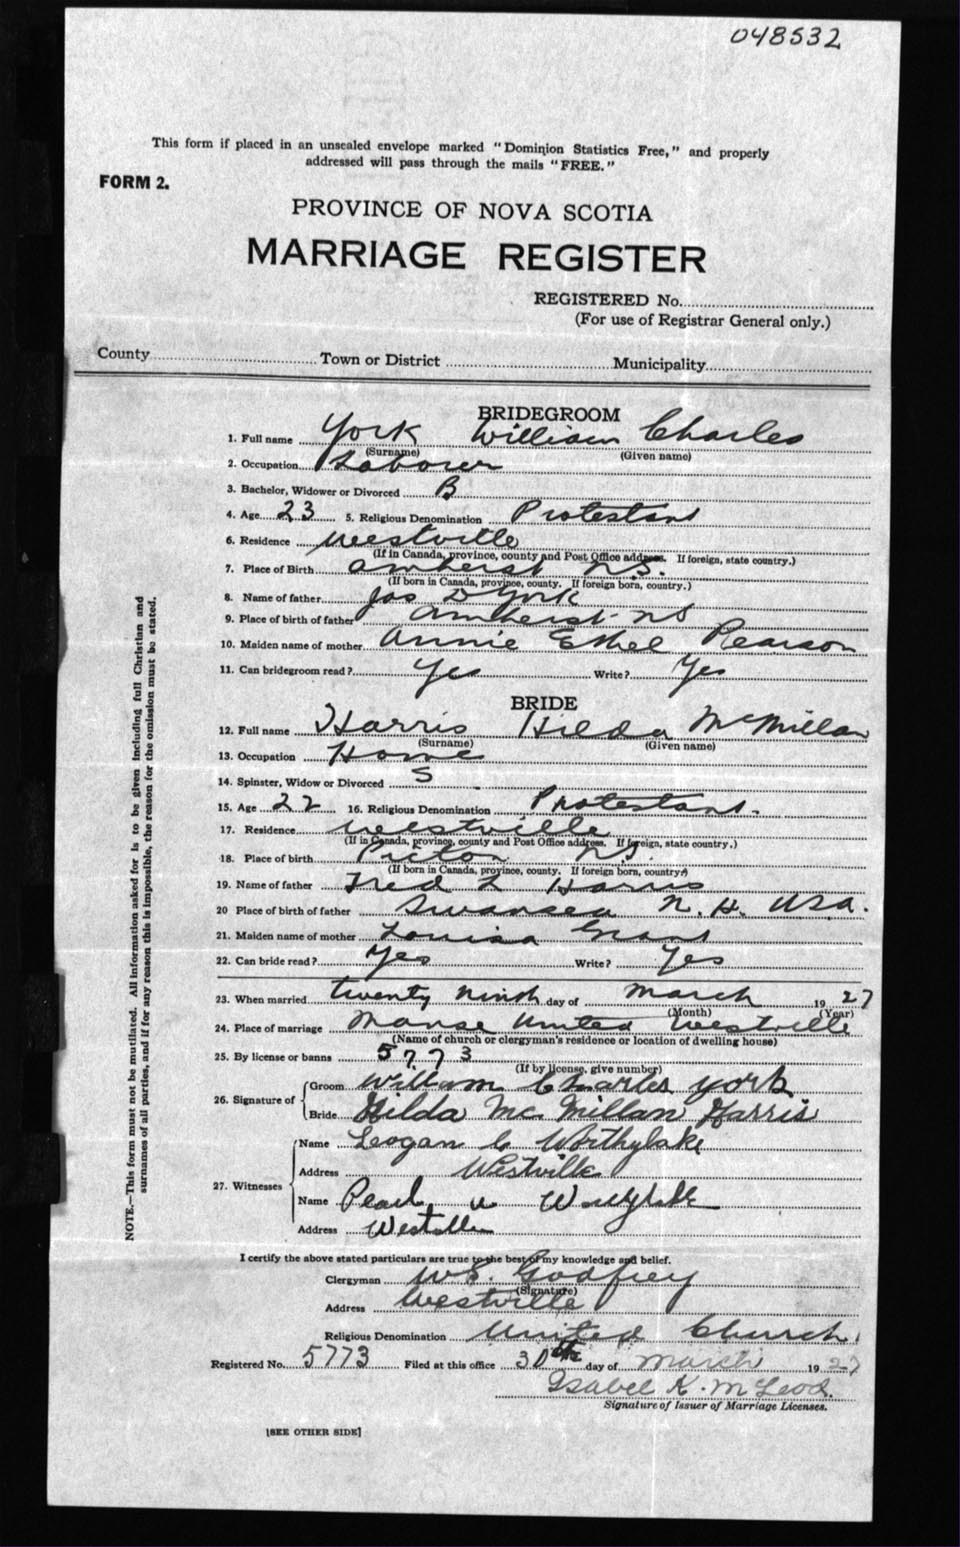 048532
This form if placed in an unsealed envelope marked "Dominion Statistics Free," and properly
addressed will pass through the mails "FREE."
FORM 2.
PROVINCE OF NOVA SCOTIA
MARRIAGE REGISTER
REGISTERED No.
(For use of Registrar General only.)
County Town or District Municipality
BRIDEGROOM
1. Full name York William Charles
(Surname) (Given name)
2. Occupation Laborer
3. Bachelor, Widower or Divorced B
4. Age 23 5. Religious Denomination Protestant
6. Residence Westville
(If in Canada, province, county and Post Office address. If foreign, state country.)
7. Place of Birth Amherst N.S.
(If born in Canada, province, county. If foreign born, country.)
8. Name of father Jas D York
9. Place of birth of father Amherst NS
10. Maiden name of mother Annie Ethel Pearson
11. Can bridegroom read? Yes Write? Yes
BRIDE
12. Full name Harris Hilda McMillan
(Surname) (Given name)
13. Occupation Home
14. Spinster, Widow or Divorced S
15. Age 22 16. Religious Denomination Protestant.
17. Residence Westville
(If in Canada, province, county and Post Office address. If foreign, state country.)
18. Place of birth Pictou N.S.
(If born in Canada, province, county. If foreign born, country.)
19. Name of father Fred L Harris
20 Place of birth of father Swansea N.H. USA.
21. Maiden name of mother Louisa Grant
22. Can bride read? Yes Write? Yes
23. When married twenty ninth day of March 1927
(Month) (Year)
24. Place of marriage Manse United Westville
(Name of church or clergyman's residence or location of dwelling house)
25. By license or banns 5773
(If by license, give number)
26. Signature of Groom William Charles York
Bride Hilda McMillan Harris
27. Witnesses
Name Leogan C Worthylake
Address Westville
Name Pearl Worthylake
Address Westville
I certify the above stated particulars are true to the best of my knowledge and belief.
Clergyman W.S. Godfrey
(Signature)
Address Westville
Religious Denomination United Church.
Registered No. 5773 Filed at this office 30th day of March 1927
Isabel K. McLeod.
Signature of Issuer of Marriage Licenses.
[SEE OTHER SIDE]
NOTE.—This form must not be mutilated. All information asked for is to be given including full Christian and
surnames of all parties, and if for any reason this is impossible, the reason for the omission must be stated.